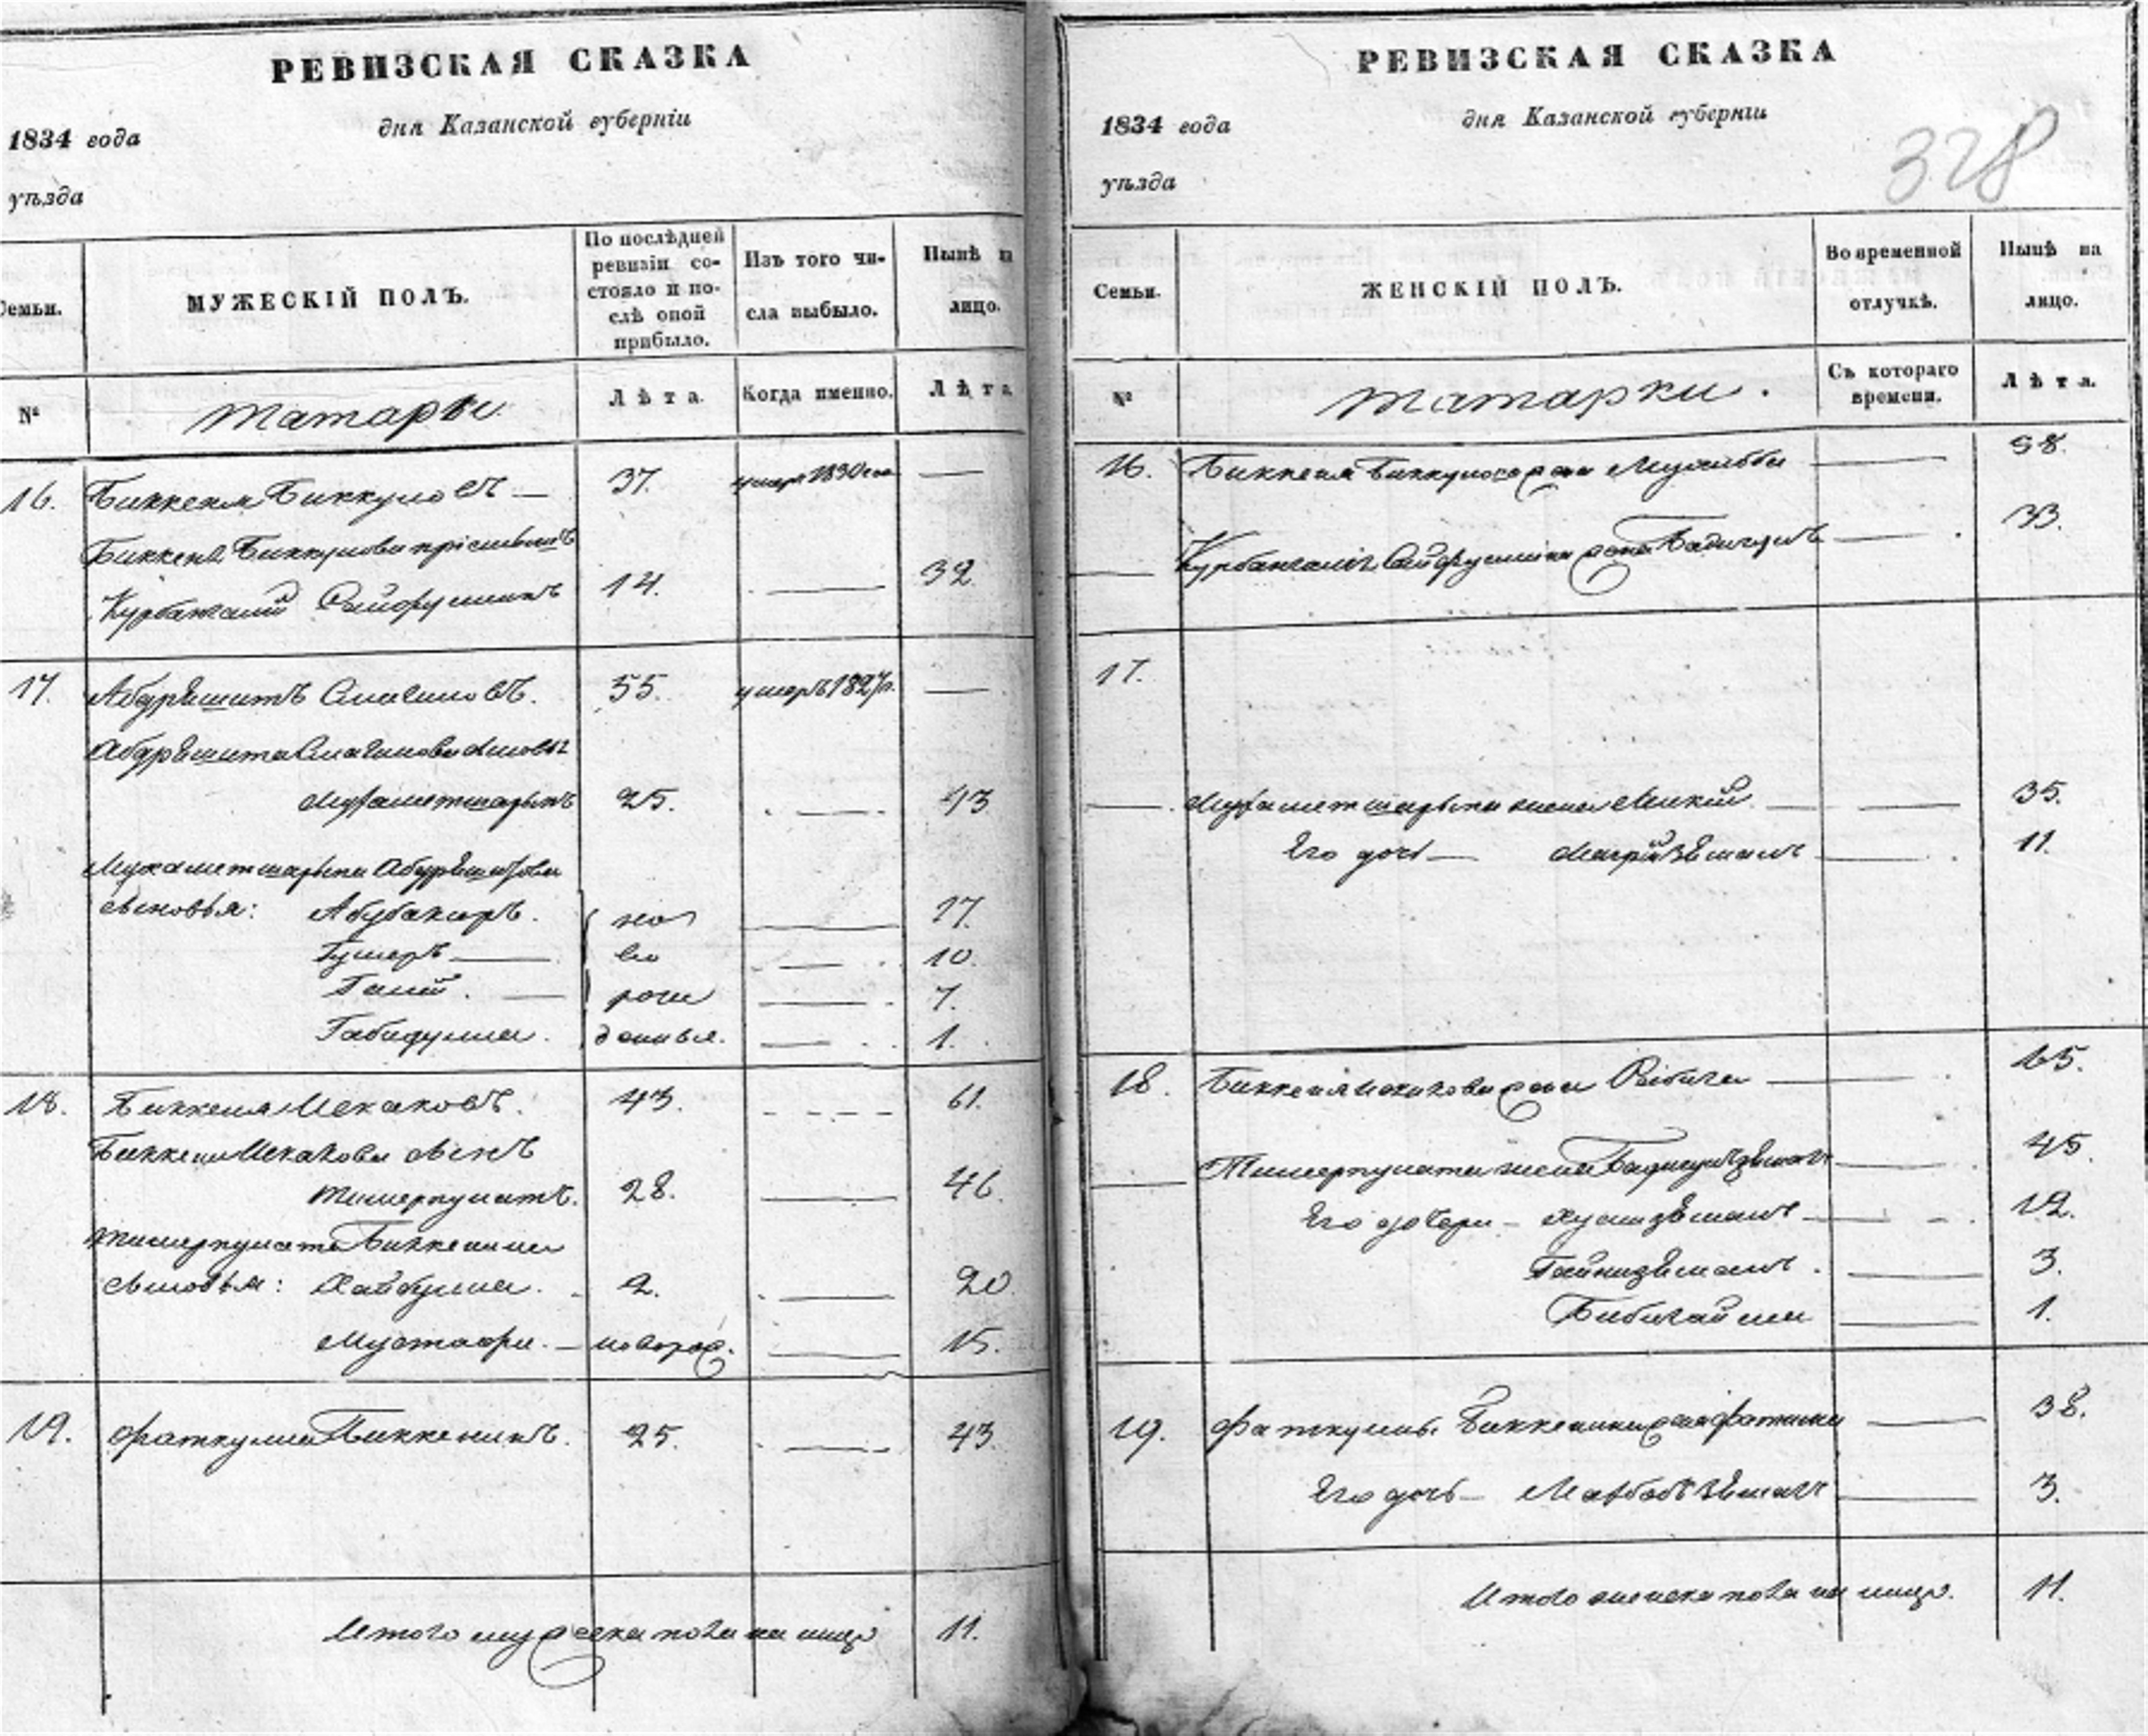 РЕВИЗСКАЯ СКАЗКА
1834 года
дня Казанской губерніи
уѣзда
Семьи.
МУЖЕСКІЙ ПОЛЪ.
По послѣдней ревизіи со-
стояло и по-
слѣ оной
прибыло.
Изъ того чи-
сла выбыло.
Нынѣ на
лицо.
№
татары
Лѣта.
Когда именно.
Лѣта.
16. Биккеня Биккуловъ — 37. умеръ 1830 —
Биккеня Биккулова
Курбангалий Сайфуллинъ 14. — 32
17. Абдряшитъ 55. умеръ 1827 г. —
Абдряшита
Мухаметшарыпъ 25. — 43
Мухаметшарыпа Абдряшитова
сыновья: Абубакиръ. но — 17.
Гумеръ — во — 10.
Галий. — рож — 7.
Габидулла. денныя. — 1.
18. Биккеня Искаковъ. 43. — 61.
Биккени Искакова сынъ
Тимерпулатъ. 28. — 46.
Тимерпулата Биккенина
сыновья: Хайбулла. 2. — 20.
Мустафа. — новорож. — 15.
19. Фаткулла Биккенинъ. 25. — 43.
Итого мужеска пола на лицо 11.
РЕВИЗСКАЯ СКАЗКА
1834 года
дня Казанской губерніи
328
уѣзда
Семьи.
ЖЕНСКІЙ ПОЛЪ.
Во временной
отлучкѣ.
Нынѣ на
лицо.
№
татарки.
Съ котораго
времени.
Лѣта.
16. Биккеня Биккулова жена — 58.
Курбангалія Сайфуллина жена — 33.
17.
Мухаметшарыпа жена — 35.
Его дочь — — 11.
18. Биккеня Искакова жена — 65.
Тимерпулата жена — 45.
Его дочери — — 12.
Гайнизямалъ. — 3.
— 1.
19. Фаткуллы Биккенина жена Фатима — 38.
Его дочь — — 3.
Итого женска пола на лицо. 11.